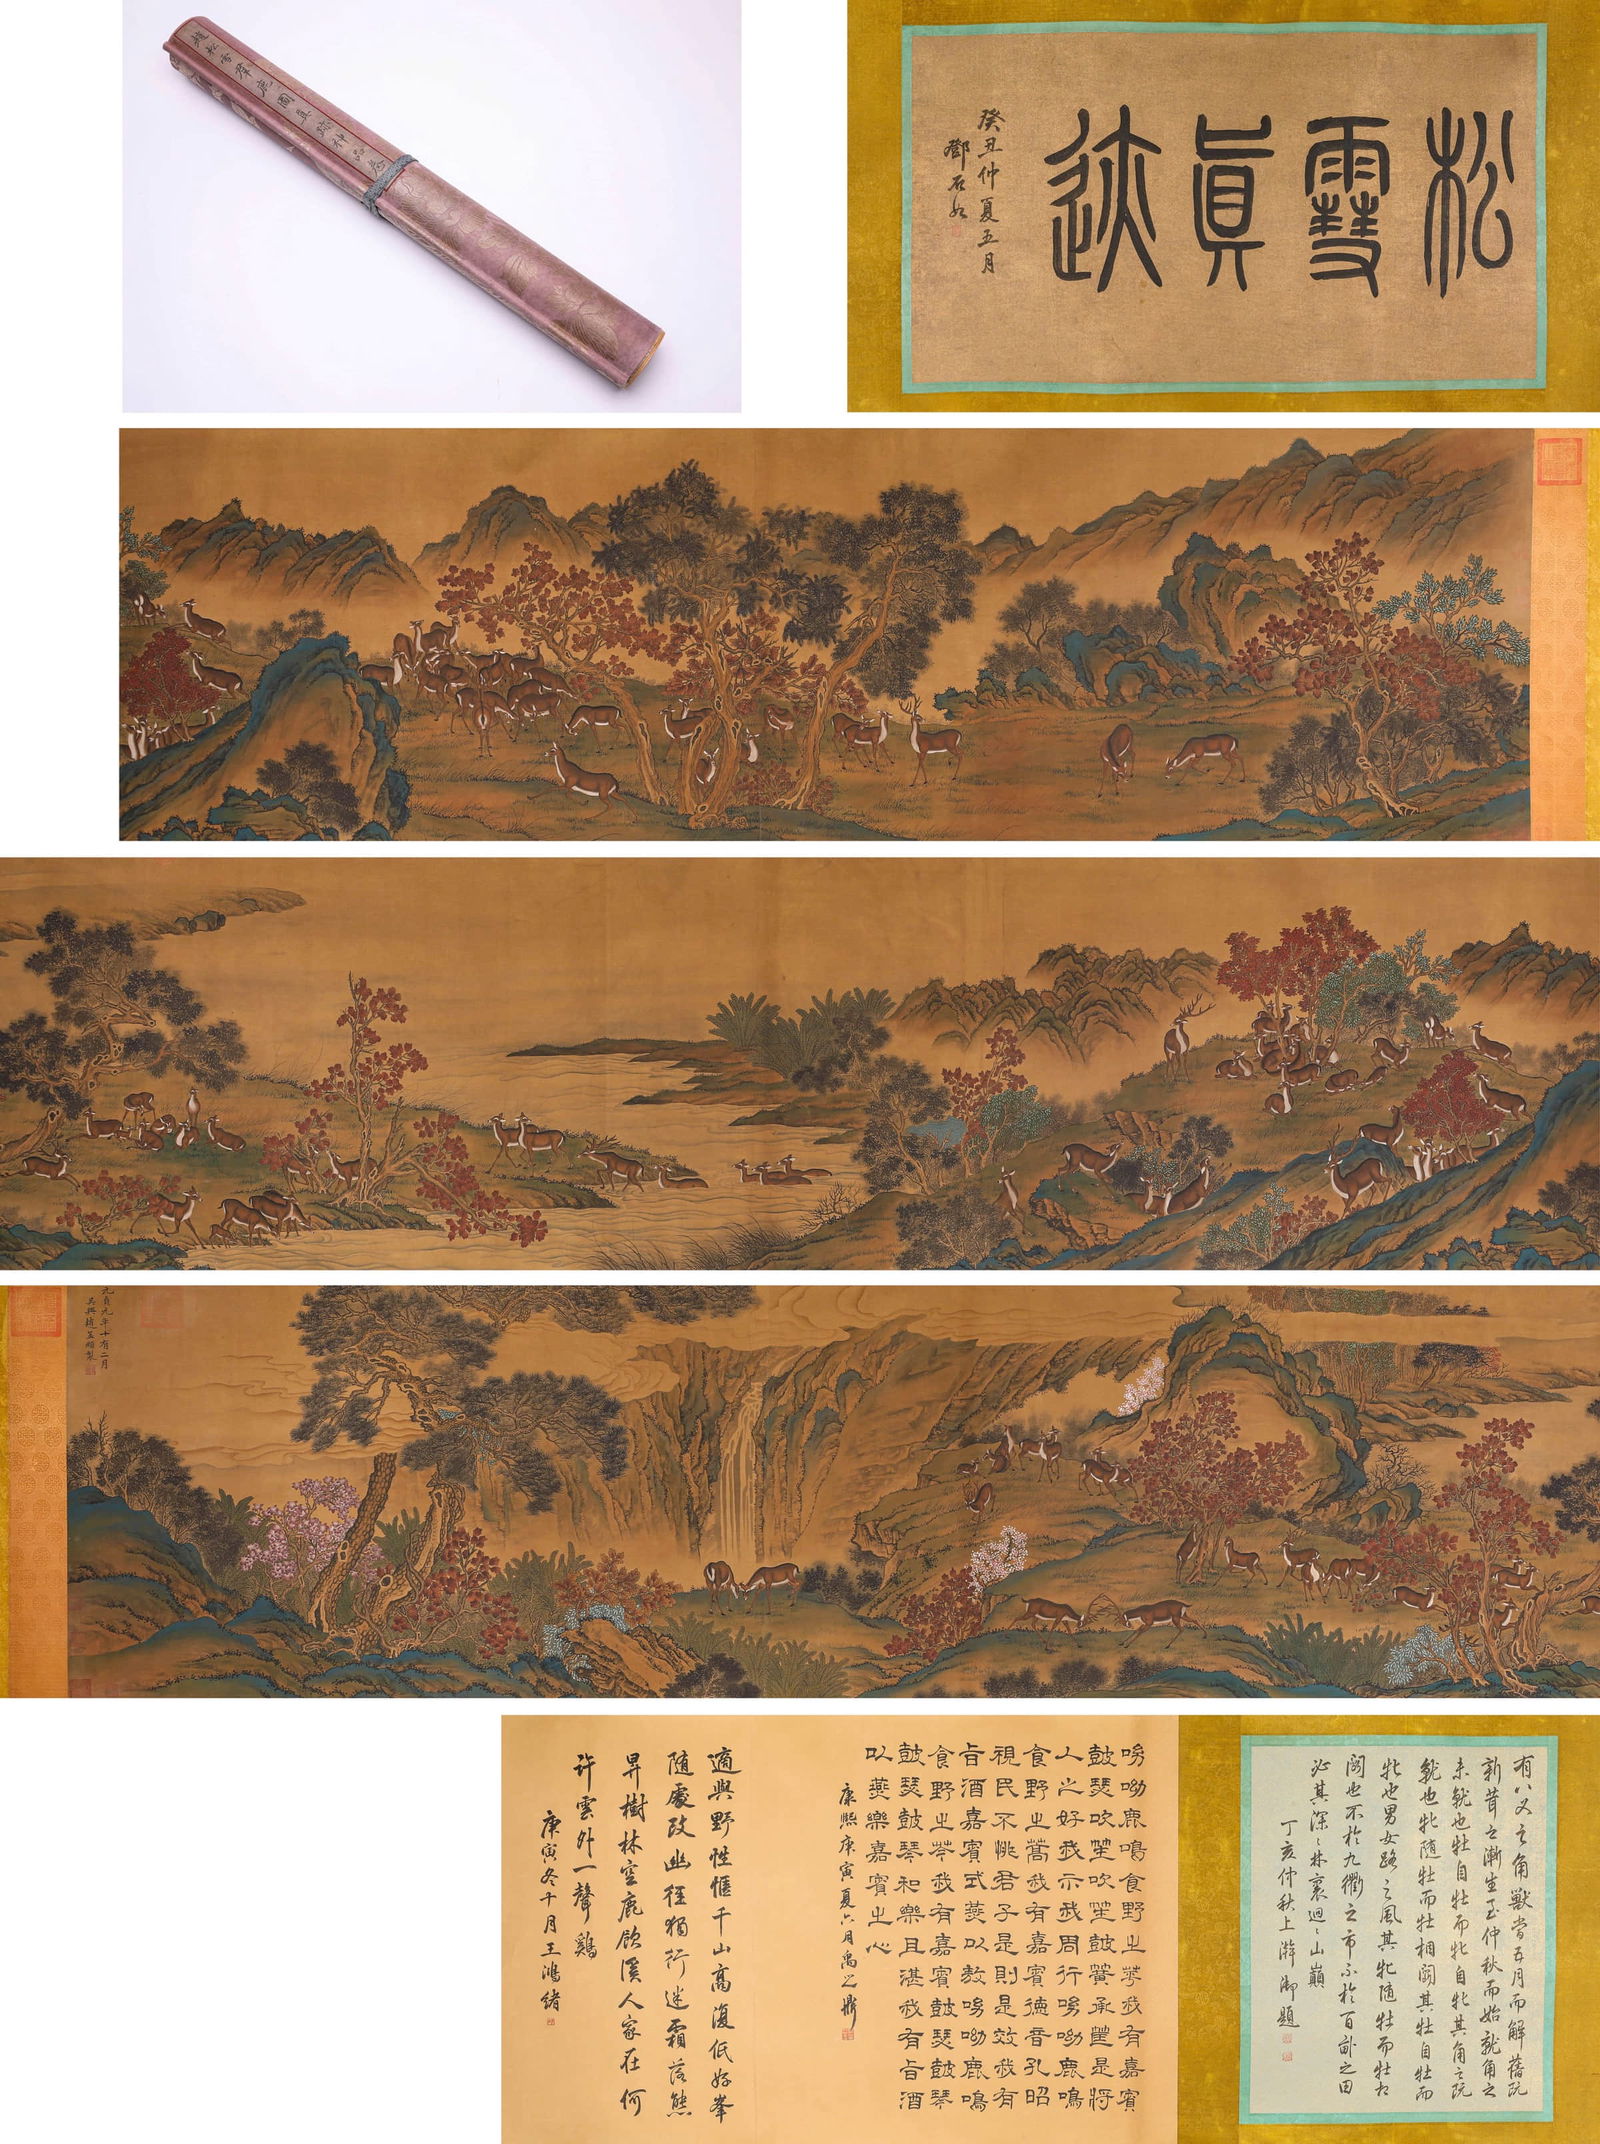 趙松雪群鹿圖真跡神品卷
松雪真迹
癸丑仲夏五月
鄧石如
元貞元年十有二月
吳興趙孟頫製
有八叉之角獸當五月而解舊阮
新茸之漸生至仲秋而始就角之
未就也牡自牡而牝自牝其角之阮
就也牝隨牡而牡相鬭其牡自牡而
牝也男女路之風其牝隨牡而牡相
鬭也不於九衢之市不於百畝之田
必其深〻林裏迴〻山巔
丁亥仲秋上澣御題
呦呦鹿鳴食野之苹我有嘉賓
鼓瑟吹笙吹笙鼓簧承筐是將
人之好我示我周行呦呦鹿鳴
食野之蒿我有嘉賓德音孔昭
視民不恌君子是則是效我有
旨酒嘉賓式燕以敖呦呦鹿鳴
食野之芩我有嘉賓鼓瑟鼓琴
鼓瑟鼓琴和樂且湛我有旨酒
以燕樂嘉賓之心
康熙庚寅夏六月禹之鼎
適與野性愜千山高復低好峯
隨處改幽徑獨行迷霜落熊
昇樹林空鹿飲溪人家在何
許雲外一聲鷄
庚寅冬十月王鴻緒